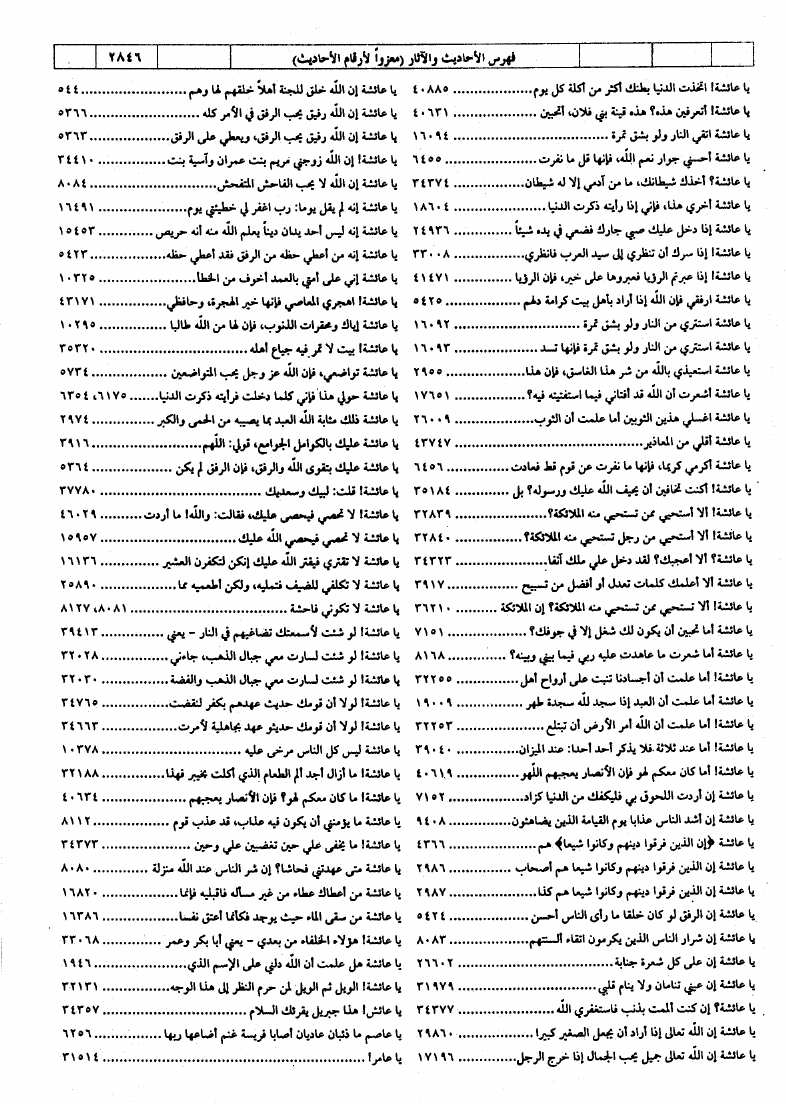 فهرس الأحاديث والآثار (معزواً لأرقام الأحاديث) ٢٨٤٦
يا عائشة! اتخذت الدنيا بطنك أكثر من أكلة كل يوم ................ ٤٠٨٨٥
يا عائشة! أتعرفين هذه؟ هذه قينة بني فلان، أتحبين ................ ٤٠٦٣١
يا عائشة اتقي النار ولو بشق تمرة ................ ١٦٠٩٤
يا عائشة أحسني جوار نعم الله، فإنها قل ما نفرت ................ ٦٤٥٥
يا عائشة؟ أخذك شيطانك، ما من آدمي إلا له شيطان ................ ٣٤٣٧٤
يا عائشة أخري هذا، فإني إذا رأيته ذكرت الدنيا ................ ١٨٦٠٤
يا عائشة إذا دخل عليك صبي جارك فضعي في يده شيئاً ................ ٢٤٩٣٦
يا عائشة! إذا سرك أن تنظري إلى سيد العرب فانظري ................ ٣٣٠٠٨
يا عائشة! إذا عبرتم الرؤيا فعبروها على خير، فإن الرؤيا ................ ٤١٤٧١
يا عائشة! ارفقي فإن الله إذا أراد بأهل بيت كرامة دلهم ................ ٥٤٢٥
يا عائشة استتري من النار ولو بشق تمرة ................ ١٦٠٩٢
يا عائشة استتري من النار ولو بشق تمرة فإنها تسد ................ ١٦٠٩٣
يا عائشة استعيذي بالله من شر هذا الغاسق، فإن هذا ................ ٢٩٥٥
يا عائشة! أشعرت أن الله قد أفتاني فيما استفتيته فيه؟ ................ ١٧٦٥١
يا عائشة اغسلي هذين الثوبين أما علمت أن الثوب ................ ٢٦٠٠٩
يا عائشة أقلي من المعاذير ................ ٤٣٧٤٧
يا عائشة أكرمي كريما، فإنها ما نفرت عن قوم قط فعادت ................ ٦٤٥٦
يا عائشة! أكنت تخافين أن يحيف الله عليك ورسوله؟ بل ................ ٣٥١٨٤
يا عائشة! ألا أستحيي ممن تستحيي منه الملائكة؟ ................ ٣٢٨٣٩
يا عائشة! ألا أستحيي من رجل تستحيي منه الملائكة؟ ................ ٣٢٨٤٠
يا عائشة؟ ألا أعجبك؟ لقد دخل علي ملك آنفا ................ ٣٤٣٢٣
يا عائشة ألا أعلمك كلمات تعدل أو أفضل من تسبيح ................ ٣٩١٧
يا عائشة! ألا تستحيي ممن تستحيي منه الملائكة؟ إن الملائكة ................ ٣٦٢١٠
يا عائشة أما تحبين أن يكون لك شغل إلا في جوفك؟ ................ ٧١٥١
يا عائشة أما شعرت ما عاهدت عليه ربي فيما بيني وبينه؟ ................ ٨١٦٨
يا عائشة! أما علمت أن أجسادنا تنبت على أرواح أهل ................ ٣٢٢٥٥
يا عائشة أما علمت أن العبد إذا سجد لله سجدة طهر ................ ١٩٠٠٩
يا عائشة! أما علمت أن الله أمر الأرض أن تبتلع ................ ٣٢٢٥٣
يا عائشة! أما عند ثلاثة فلا يذكر أحد أحدا: عند الميزان ................ ٣٩٠٤٠
يا عائشة! أما كان معكم لهو فإن الأنصار يعجبهم اللهو ................ ٤٠٦١٩
يا عائشة إن أردت اللحوق بي فليكفك من الدنيا كزاد ................ ٧١٥٢
يا عائشة إن أشد الناس عذابا يوم القيامة الذين يضاهئون ................ ٩٤٠٨
يا عائشة ﴿إن الذين فرقوا دينهم وكانوا شيعا﴾ هم ................ ٤٣٦٦
يا عائشة إن الذين فرقوا دينهم وكانوا شيعا هم أصحاب ................ ٢٩٨٦
يا عائشة إن الذين فرقوا دينهم وكانوا شيعا هم كذا ................ ٢٩٨٧
يا عائشة إن الرفق لو كان خلقا ما رأى الناس أحسن ................ ٥٤٢٤
يا عائشة إن شرار الناس الذين يكرمون اتقاء ألسنتهم ................ ٨٠٨٣
يا عائشة إن على كل شعرة جنابة ................ ٢٦٦٠٢
يا عائشة إن عيني تنامان ولا ينام قلبي ................ ٣١٩٧٩
يا عائشة؟ إن كنت ألممت بذنب فاستغفري الله ................ ٣٤٣٧٧
يا عائشة إن الله تعالى إذا أراد أن يجعل الصغير كبيرا ................ ٢٩٨٦٠
يا عائشة إن الله تعالى جميل يحب الجمال إذا خرج الرجل ................ ١٧١٩٦
يا عائشة إن الله خلق للجنة أهلاً خلقهم لها وهم ................ ٥٤٤
يا عائشة إن الله رفيق يحب الرفق في الأمر كله ................ ٥٣٦٦
يا عائشة إن الله رفيق يحب الرفق، ويعطي على الرفق ................ ٥٣٦٣
يا عائشة! إن الله زوجني مريم بنت عمران وآسية بنت ................ ٣٤٤١٠
يا عائشة إن الله لا يحب الفاحش المتفحش ................ ٨٠٨٤
يا عائشة إنه لم يقل يوما: رب اغفر لي خطيئتي يوم ................ ١٦٤٩١
يا عائشة إنه ليس أحد يدان ديناً يعلم الله منه أنه حريص ................ ١٥٤٥٣
يا عائشة إنه من أعطي حظه من الرفق فقد أعطي حظه ................ ٥٤٢٣
يا عائشة إني على أمتي بالعمد أخوف من الخطأ ................ ١٠٣٢٥
يا عائشة! اهجري المعاصي فإنها خير الهجرة، وحافظي ................ ٤٣١٧١
يا عائشة إياك ومحقرات الذنوب، فإن لها من الله طالبا ................ ١٠٢٩٥
يا عائشة! بيت لا تمر فيه جياع أهله ................ ٣٥٣٢٠
يا عائشة تواضعي، فإن الله عز وجل يحب المتواضعين ................ ٥٧٣٤
يا عائشة حولي هذا فإني كلما دخلت فرأيته ذكرت الدنيا ....... ٦١٧٥، ٦٣٥٤
يا عائشة ذلك مثابة الله العبد بما يصيبه من الحمى والكبر ................ ٢٩٧٤
يا عائشة عليك بالكوامل الجوامع، قولي: اللهم ................ ٣٩١٦
يا عائشة عليك بتقوى الله والرفق، فإن الرفق لم يكن ................ ٥٣٦٤
يا عائشة! قلت: لبيك وسعديك ................ ٣٧٧٨٠
يا عائشة! لا تحصي فيحصى عليك، فقالت: والله! ما أردت ................ ٤٦٠٢٩
يا عائشة لا تحصي فيحصي الله عليك ................ ١٥٩٥٧
يا عائشة لا تقتري فيقتر الله عليك إنكن لتكفرن العشير ................ ١٦١٣٦
يا عائشة لا تكلفي للضيف فتمليه، ولكن أطعميه مما ................ ٢٥٨٩٠
يا عائشة لا تكوني فاحشة ................ ٨٠٨١، ٨١٢٧
يا عائشة! لو شئت لأسمعتك تضاغيهم في النار - يعني ................ ٣٩٤١٣
يا عائشة! لو شئت لسارت معي جبال الذهب، جاءني ................ ٣٢٠٢٨
يا عائشة! لو شئت لسارت معي جبال الذهب والفضة ................ ٣٢٠٣٠
يا عائشة! لولا أن قومك حديث عهدهم بكفر لنقضت ................ ٣٤٧٦٥
يا عائشة! لولا أن قومك حديثو عهد بجاهلية لأمرت ................ ٣٤٦٦٣
يا عائشة ليس كل الناس مرخى عليه ................ ١٠٣٧٨
يا عائشة! ما أزال أجد ألم الطعام الذي أكلت بخيبر فهذا ................ ٣٢١٨٨
يا عائشة! ما كان معكم لهو؟ فإن الأنصار يعجبهم ................ ٤٠٦٣٤
يا عائشة ما يؤمنني أن يكون فيه عذاب، قد عذب قوم ................ ٨١١٢
يا عائشة! ما يخفى علي حين تغضبين علي وحين ................ ٣٤٣٧٣
يا عائشة متى عهدتني فحاشا؟ إن شر الناس عند الله منزلة ................ ٨٠٨٠
يا عائشة من أعطاك عطاء من غير مسأله فاقبليه فإنما ................ ١٦٨٢٠
يا عائشة من سقى الماء حيث يوجد فكأنما أعتق نفسا ................ ١٦٣٨٦
يا عائشة! هؤلاء الخلفاء من بعدي - يعني أبا بكر وعمر ................ ٣٣٠٦٨
يا عائشة هل علمت أن الله دلني على الإسم الذي ................ ١٩٤٦
يا عائشة! الويل ثم الويل لمن حرم النظر إلى هذا الوجه ................ ٣٢١٣١
يا عائش! هذا جبريل يقرئك السلام ................ ٣٤٣٥٧
يا عاصم ما ذئبان عاديان أصابا فريسة غنم أضاعها ربها ................ ٦٢٥٦
يا عامر! ................ ٣١٥١٤